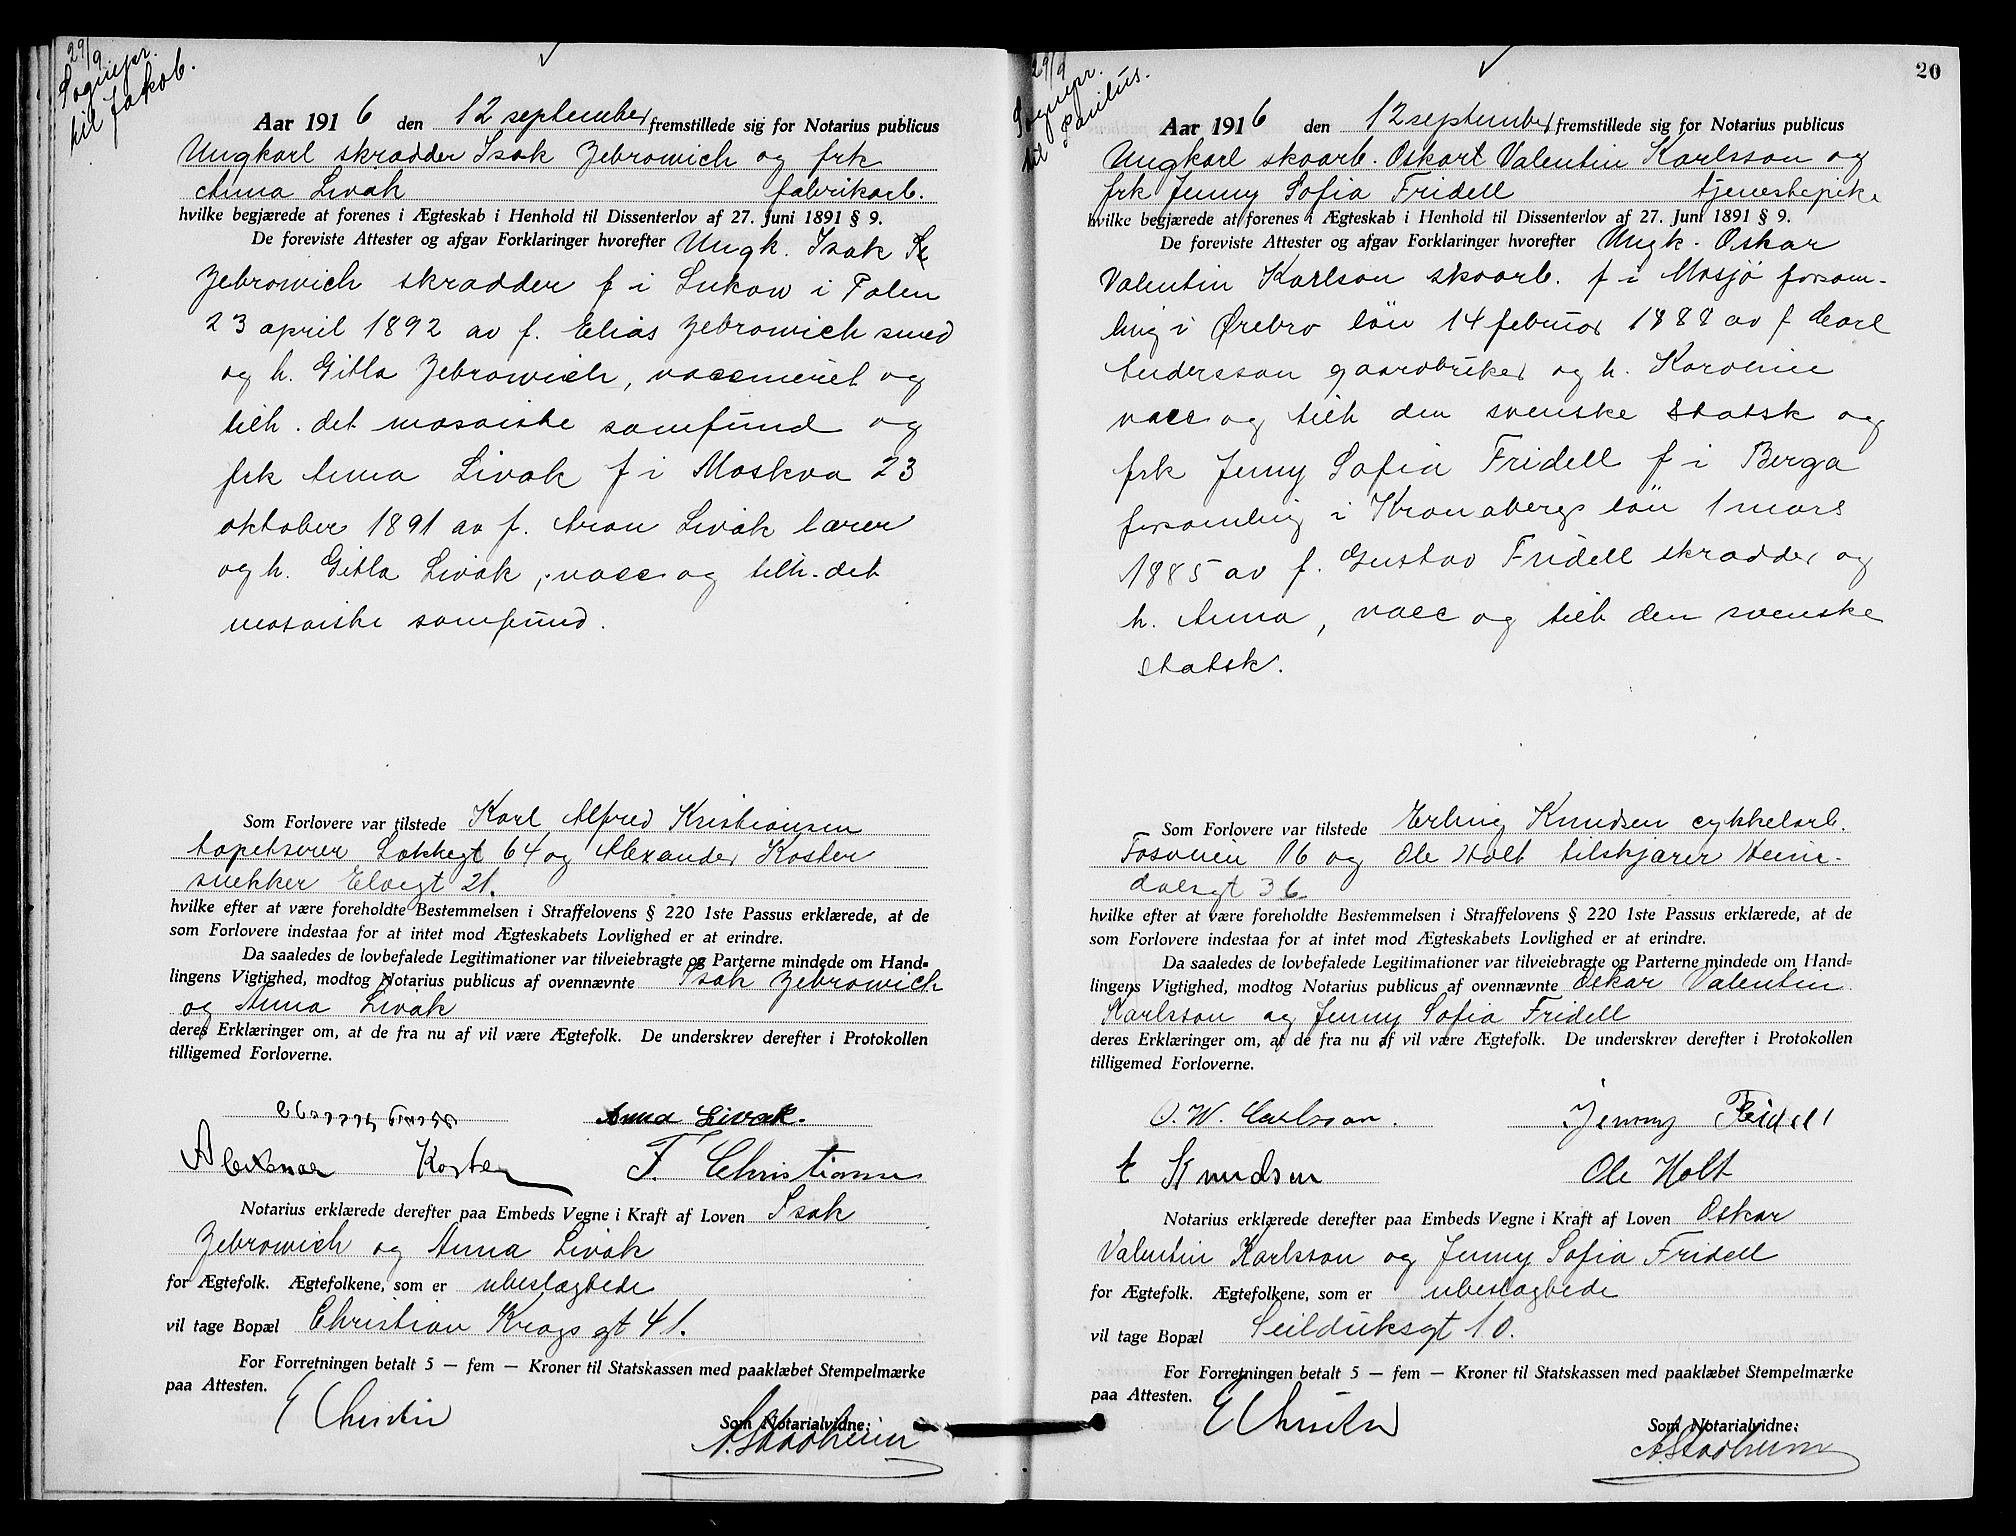 29/9
Sognepr.
til Jakob.
Aar 1916 den 12 september fremstillede sig for Notarius publicus
Ungkarl skrædder Isak Zebrowich og frk
Anna Livak fabrikarb.
hvilke begjærede at forenes i Ægteskab i Henhold til Dissenterlov af 27. Juni 1891 § 9.
De foreviste Attester og afgav Forklaringer hvorefter Ungk. Isak
Zebrowich skrædder f i Lukow i Polen
23 april 1892 av f. Elias Zebrowich smed
og h. Gitla Zebrowich, vaccineret og
tilh. det mosaiske samfund og
frk Anna Livak f i Moskva 23
oktober 1891 av f. Aron Livak lærer
og h. Gitla Livak, vacc og tilh. det
mosaiske samfund.
Som Forlovere var tilstede Karl Alfred Kristiansen
tapetserer Løkkegt 64 og Alexander Koster
snekker Elvegt 21.
hvilke efter at være foreholdte Bestemmelsen i Straffelovens § 220 1ste Passus erklærede, at de
som Forlovere indestaa for at intet mod Ægteskabets Lovlighed er at erindre.
Da saaledes de lovbefalede Legitimationer var tilveiebragte og Parterne mindede om Hand-
lingens Vigtighed, modtog Notarius publicus af ovennævnte Isak Zebrowich
og Anna Livak
deres Erklæringer om, at de fra nu af vil være Ægtefolk. De underskrev derefter i Protokollen
tilligemed Forloverne.
Anna Livak.
Alexander Koster F. Christiansen
Notarius erklærede derefter paa Embeds Vegne i Kraft af Loven Isak
Zebrowich og Anna Livak
for Ægtefolk. Ægtefolkene, som er ubeslægtede
vil tage Bopæl Christian Krogs gt 41.
For Forretningen betalt 5 — fem — Kroner til Statskassen med paaklæbet Stempelmærke
paa Attesten.
E Christie
Som Notarialvidne:
A. Stadheim
20
29/9
Sognepr.
til Paulus.
Aar 1916 den 12 september fremstillede sig for Notarius publicus
Ungkarl skoarb. Oskart Valentin Karlsson og
frk Jenny Sofia Fridell tjenestepike
hvilke begjærede at forenes i Ægteskab i Henhold til Dissenterlov af 27. Juni 1891 § 9.
De foreviste Attester og afgav Forklaringer hvorefter Ungk. Oskar
Valentin Karlson skoarb. f i Mosjö forsam-
ling i Ørebro län 14 februar 1888 av f Carl
Andersson gaardbruker og h. Karoline
vacc og tilh den svenske statsk og
frk Jenny Sofia Fridell f i Berga
forsamling i Kronobergs län 1 mars
1885 av f. Gustav Fridell skrædder og
h. Anna, vacc og tilh den svenske
statsk.
Som Forlovere var tilstede Erling Knudsen cykkelarb.
Fosveien 16 og Ole Holt tilskjærer Heim-
dalsgt 36
hvilke efter at være foreholdte Bestemmelsen i Straffelovens § 220 1ste Passus erklærede, at de
som Forlovere indestaa for at intet mod Ægteskabets Lovlighed er at erindre.
Da saaledes de lovbefalede Legitimationer var tilveiebragte og Parterne mindede om Hand-
lingens Vigtighed, modtog Notarius publicus af ovennævnte Oskar Valentin
Karlsson og Jenny Sofia Fridell
deres Erklæringer om, at de fra nu af vil være Ægtefolk. De underskrev derefter i Protokollen
tilligemed Forloverne.
O. W. Carlsson. Jenny Fridell
E Knudsen Ole Holt
Notarius erklærede derefter paa Embeds Vegne i Kraft af Loven Oskar
Valentin Karlsson og Jenny Sofia Fridell
for Ægtefolk. Ægtefolkene, som er ubeslægtede
vil tage Bopæl Seilduksgt 10.
For Forretningen betalt 5 — fem — Kroner til Statskassen med paaklæbet Stempelmærke
paa Attesten.
E Christie
Som Notarialvidne:
A. Stadheim